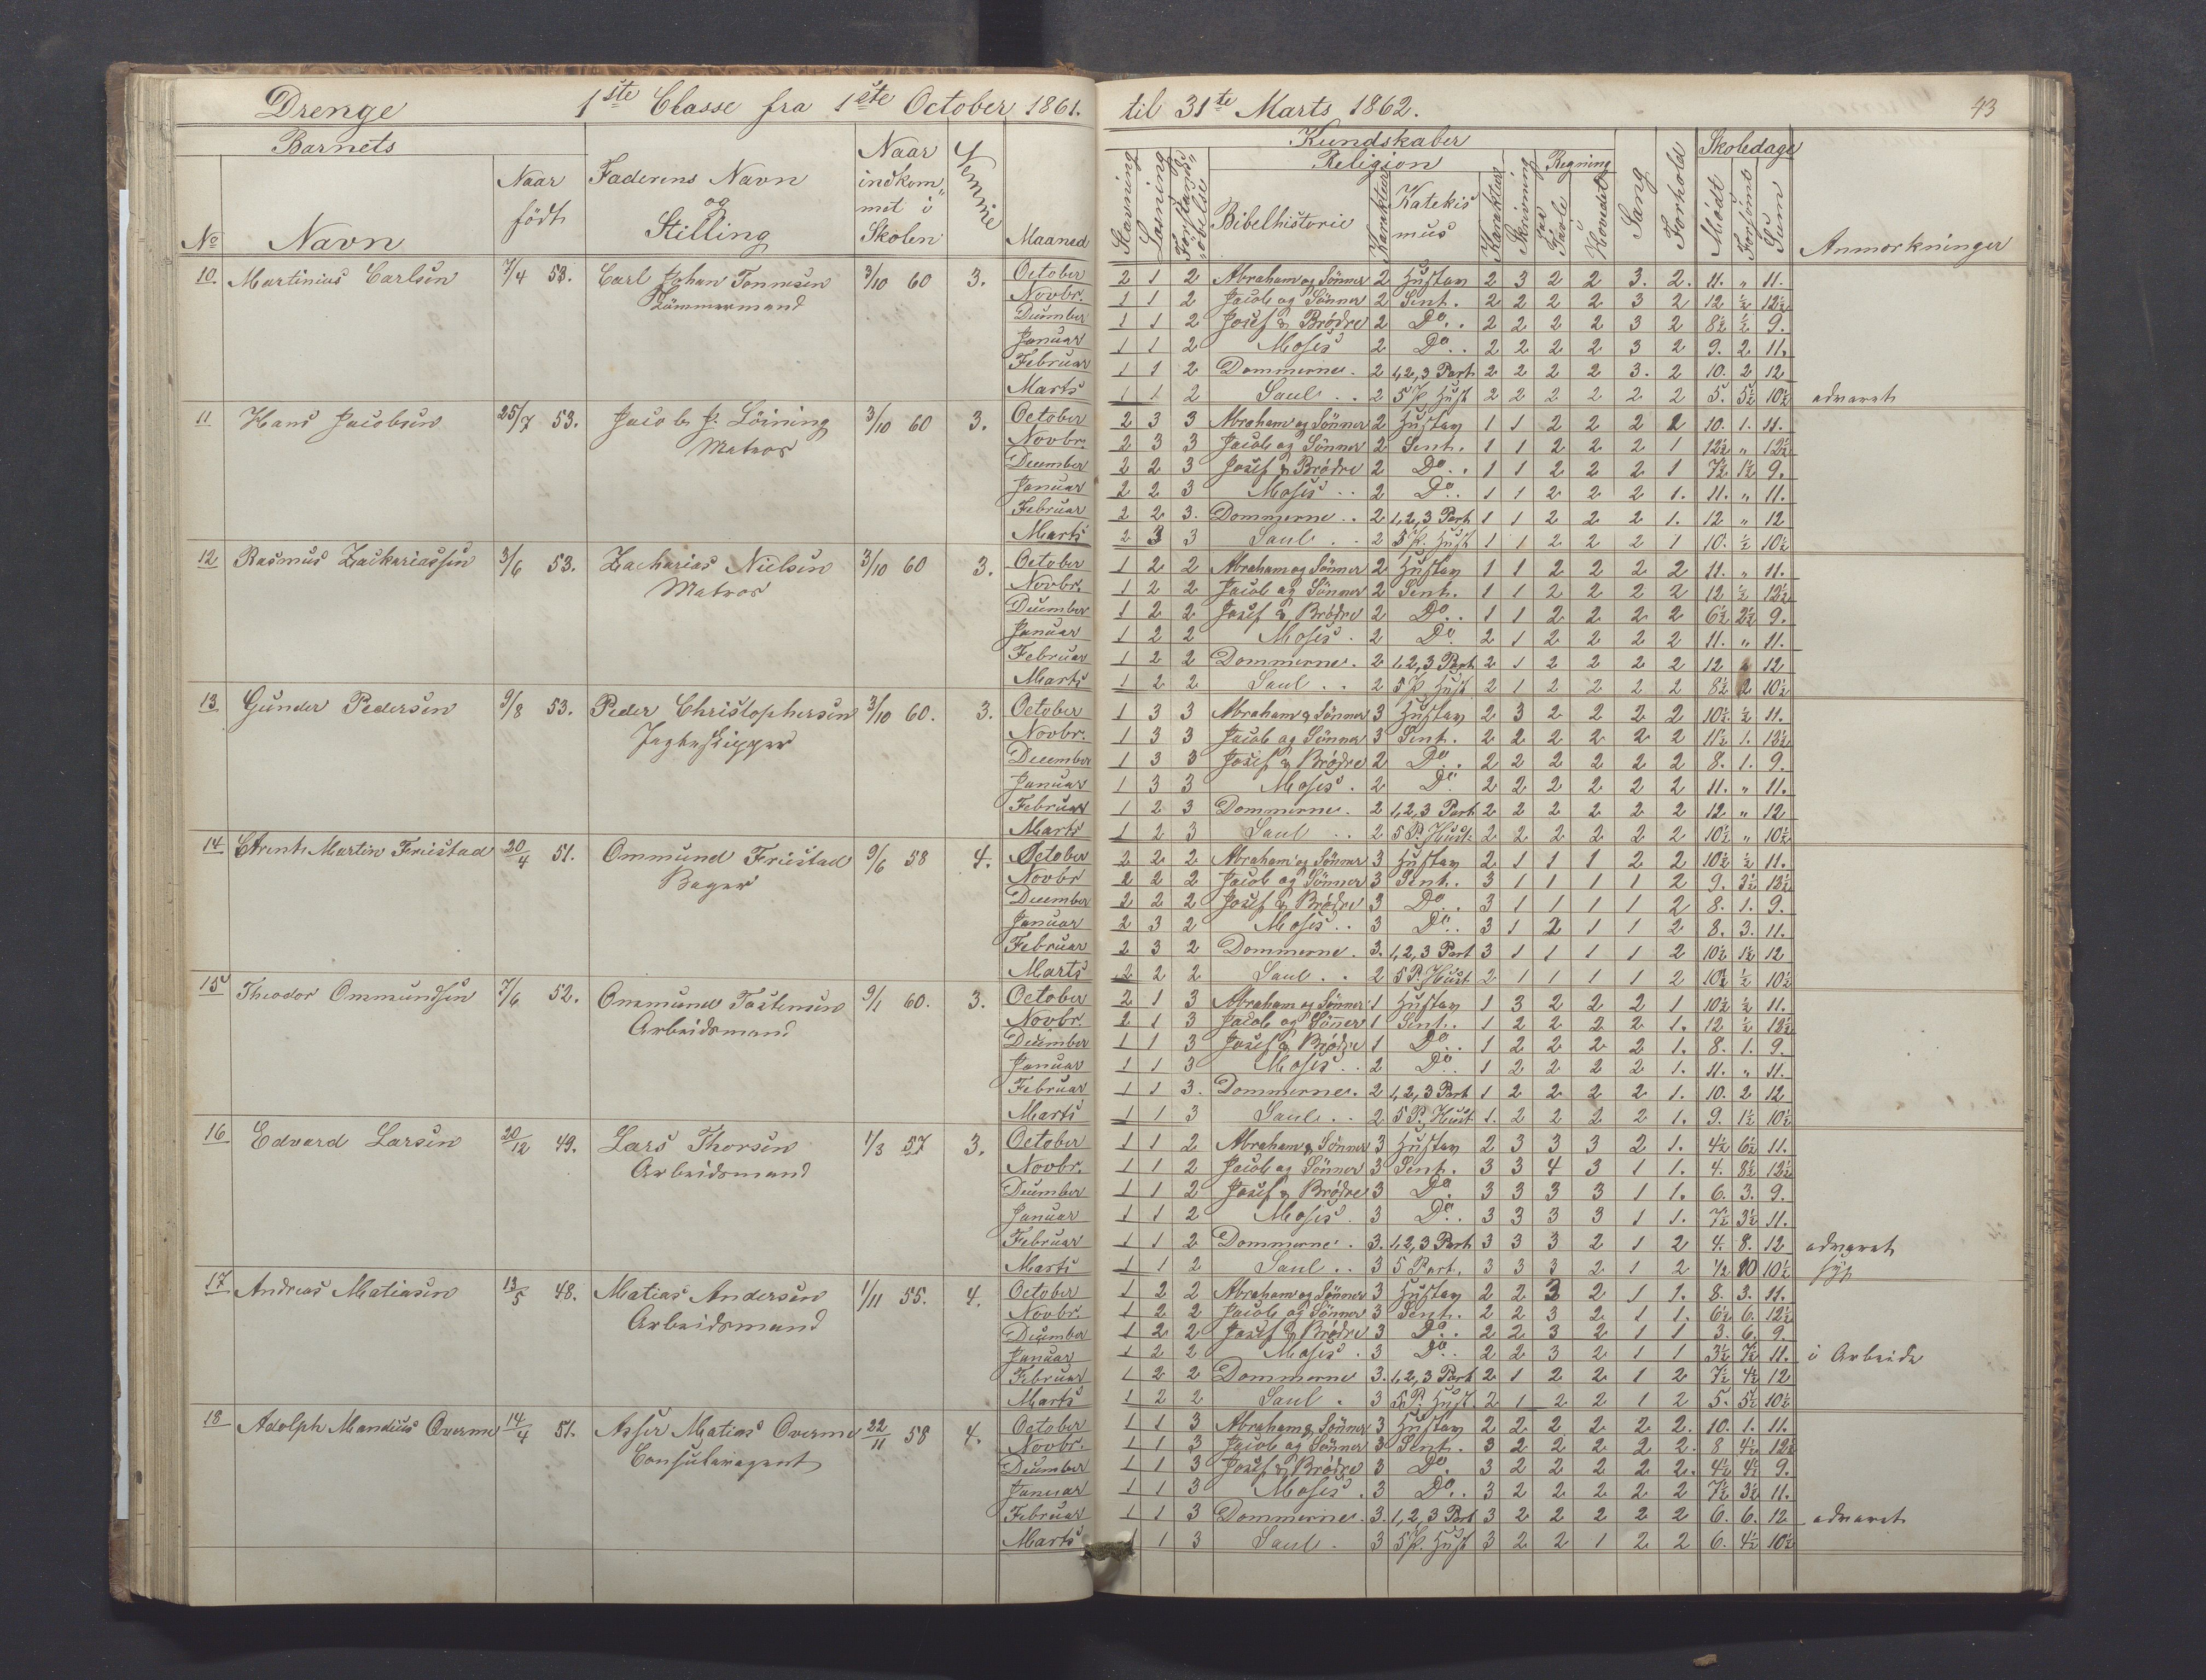 Drenge 1ste Classe fra 1ste October 1861. til 31te Marts 1862. 43
Barnets
No Navn Naar födt Faderens Navn og Stilling Naar indkommet i Skolen Nemme Maaned
Kundskaber
Stavning Læsning Religion Bibelhistorie Karakter Katekismus Karakter Skrivning Regning paa Tavle i Hovedet Sang Forhold Skoledage Mödt Forsömt Sum Anmærkninger
10. Martinius Carlsen 7/4 53. Carl Johan Tonnesen 3/10 60 3.
Tömmermand
October 2 1 2 Abraham og Sönner 2 Hustav 2 3 2 2 3. 2. 11. " 11.
Novbr. 1 1 2 Jacob og Sönner 2 Sent. 2 2 2 2 3 2 12 ½ 12½
December 1 1 2 Josef & Brödre 2 Do.. 2 2 2 2 3 2 8½ ½ 9.
Januar 1 1 2 Moses 2 Do.. 2 2 2 2 3 2 9. 2. 11.
Februar 1 1 2 Dommerne. 2 1,2,3 Part 2 2 2 2 3. 2 10. 2 12
Marts 1 1 2 Saul .. 2 5 P. Hust 2 2 2 2 2 2 5. 5½ 10½ advaret
11 Hans Jacobsen 25/7 53. Jacob J. Löining 3/10 60 3.
Matros
October 2 3 3 Abraham og Sönner 2 Hustav 1 1 2 2 2 2 10. 1. 11.
Novbr. 2 3 3 Jacob og Sönner 2 Sent. 1 1 2 2 2 1 12½ " 12½
December 2 2 3 Josef & Brödre 2 Do.. 1 1 2 2 2 1 7½ 1½ 9.
Januar 2 2 3 Moses .. 2 Do.. 1 1 2 2 2 1. 11. " 11.
Februar 2 2 3. Dommerne .. 2 1,2,3 Part 1 1 2 2 2 1. 12 " 12
Marts 2 3 3 Saul .. 2 5 P. Hust 1 1 2 2 2 1 10. ½ 10½
12 Rasmus Zackariassen 3/6 53. Zacharias Nielsen 3/10 60 3.
Matros
October 1 2 2 Abraham og Sönner 2 Hustav 1 1 2 2 2 2 11. " 11.
Novbr. 1 2 2 Jacob og Sönner 2 Sent. 1 1 2 2 2 2 12 ½ 12½
December 1 2 2 Josef & Brödre 2 Do.. 1 1 2 2 2 2 6½ 2½ 9.
Januar 1 2 2 Moses . 2 Do. 2 1 2 2 2 2 11. " 11.
Februar 1 2 2 Dommerne. 2 1,2,3 Part 2 1 2 2 2 2 12 12
Marts 1 2 2 Saul .. 2 5 P. Hust 2 1 2 2 2 2 8½ 2 10½
13 Gunder Pedersen 9/8 53. Peder Christophersen 3/10 60. 3.
Jagteskipper
October 1 3 3 Abraham & Sönner 3 Hustav 2 3 2 2 2 2 10½ ½ 11.
Novbr. 1 3 3 Jacob og Sönner 3 Sent. 2 2 2 2 2 2 11½ 1. 12½
December 1 3 3 Josef & Brödre 2 Do.. 2 2 2 2 2 2 8. 1. 9.
Januar 1 3 3 Moses . 2 Do. 2 2 2 2 2 2 11. " 11.
Februar 1 2 3 Dommerne. 2 1,2,3 Part 2 2 2 2 2 2 12 " 12
Marts 1 2 3 Saul .. 2 5 P. Hust. 2 2 2 2 2 2 10½ " 10½
14 Martin Friestad 20/4 51. Ommund Friestad 9/6 58 4.
Bager
October 2 2 2 Abraham og Sönner 3 Hustav 2 1 1 1 2 2 10½ ½ 11.
Novbr 2 2 2 Jacob og Sönner 3 Sent. 3 1 1 1 1 2 9. 3½ 12½
December 2 2 2 Josef & Brödre 3 Do.. 3 1 1 1 1 2 8. 1. 9.
Januar 2 3 2 Moses .. 3 Do.. 3 1 2 1 1 2 8. 3. 11.
Februar 2 3 2 Dommerne. 3. 1,2,3 Part 3 1 1 1 1 2 10½ 1½ 12
Marts 2 2 2 Saul .. 2 5 P. Hust 2 1 1 1 1 2 10 ½ 10½
15 Theodor Ommundsen 7/6 52. Ommund Tostensen 9/1 60. 3.
Arbeidsmand
October 2 1 3 Abraham og Sönner 1 Hustav 1 3 2 2 2 1 10½ ½ 11.
Novbr. 2 1 3 Jacob og Sönner 1 Sent. 1 2 2 2 2 1. 12 ½ 12½
December 1 1 3 Josef & Brödre 1 Do.. 1 2 2 2 2 1. 8. 1. 9.
Januar 1 1 3 Moses .. 2 Do.. 1 2 2 2 2 1. 11. " 11.
Februar 1 1 3. Dommerne. 2 1,2,3 Part 1 2 2 2 2 1. 10. 2 12
Marts 1 1 3 Saul .. 2 5 P. Hust 1. 2 2 2 2 1. 9. 1½ 10½
16 Edvard Larsen 20/12 49. Lars Thorsen 1/3 57 3.
Arbeidsmand
October 1 1 2 Abraham & Sönner 3 Hustav 2 3 3 3 2 1. 4½ 6½ 11.
Novbr. 1 1 2 Jacob og Sönner 3 Sent. 3 3 4 3 1 1. 4. 8½ 12½
December 1 1 2 Josef & Brödre 3 Do. 3 3 3 3 1 1. 6. 3. 9.
Januar 1 1 2 Moses . 3 Do.. 3 3 3 3 1 1. 7½ 3½ 11.
Februar 1 1 2 Dommerne . 3. 1,2,3 Part 3 3 3 2 1 2 4. 8. 12 advaret
Marts 1 1 2 Saul .. 3 5 Part. 3 3 3 2 1 2 ½ 10 10½ syg
17 Andreas Matiasen 13/5 48. Matias Andersen 1/11 55. 4.
Arbeidsmand
October 1 2 2 Abraham og Sönner 3 Hustav 2 2 3 2 1 1. 8. 3. 11.
Novbr. 1 2 2 Jacob og Sönner 3 Sent. 2 2 3 2 1 1. 6½ 6. 12½
December 1 2 2 Josef & Brödre 3 Do.. 2 2 3 2 1 1 3. 6. 9.
Januar 1 2 2 Moses . 3 Do.. 2 2 3 2 1 1 3½ 7½ 11. i Arbeide
Februar 1 2 2 Dommerne 3. 1,2,3 Part 2 1 2 2 1 2 7½ 4½ 12
Marts 1 2 2 Saul . 3 5 P. Hust. 2 1 2 2 1 2 5. 5½ 10½
18 Adolph Mandius Qverme 14/4 51. Asser Matias Qverme 22/11 58 4.
Consuleragent
October 1 1 3 Abraham & Sönner 3 Hustav 2 2 2 2 2 2. 10. 1. 11.
Novbr. 1 1 3 Jacob og Sönner 3 Sent. 3 2 2 2 2 2. 8 4½ 12½
December 1 1 3 Josef & Brödre 3 Do. 3 2 2 2 2 2. 4½ 4½ 9.
Januar 1 1 3 Moses . 3 Do.. 3 2 2 2 2 2 7½ 3½ 11.
Februar 1 1 3 Dommerne. 3. 1,2,3 Part 3 2 2 2 2 2 6. 6. 12 advaret
Marts 1 3 Saul . 3 5 P. Hust 3 2 2 1 2 2 6. 4½ 10½